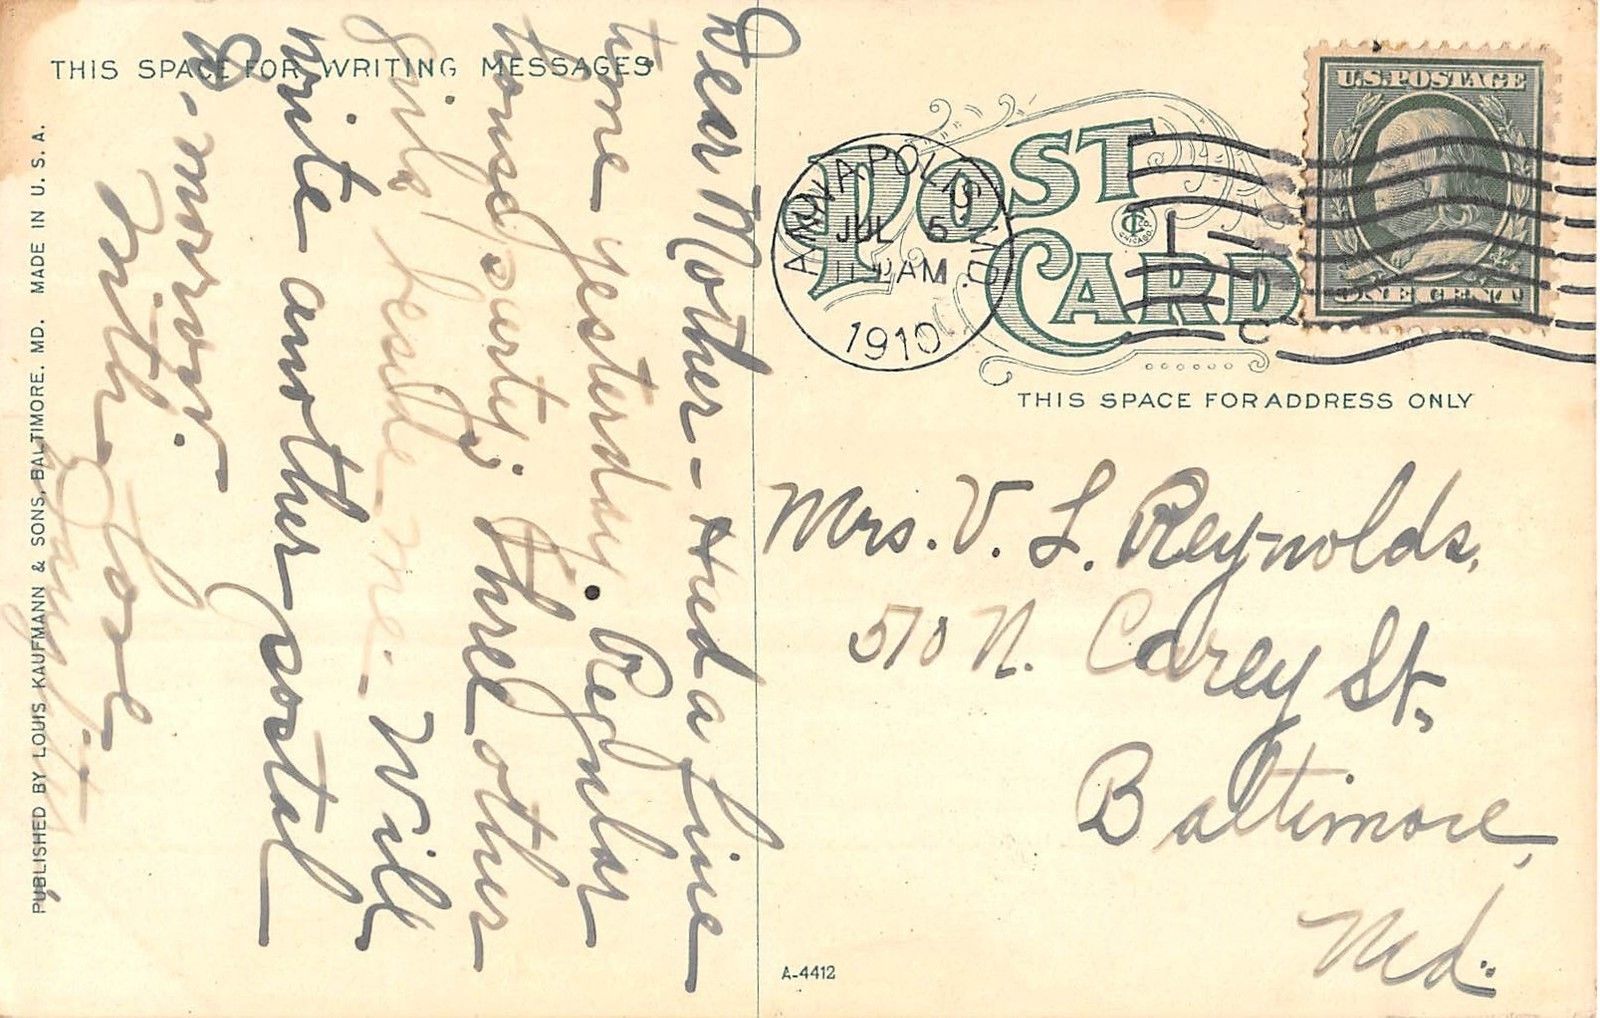 THIS SPACE FOR WRITING MESSAGES
Dear Mother - Had a fine
time yesterday. Regular
house party; three other
girls beside me. Will
write another postal
to-morrow.
With love
Daughter
PUBLISHED BY LOUIS KAUFMANN & SONS, BALTIMORE. MD. MADE IN U.S.A.
POST
CARD
ANNAPOLIS MD.
JUL 5
AM
1910
U.S. POSTAGE
ONE CENT
THIS SPACE FOR ADDRESS ONLY
Mrs. V. L. Reynolds,
510 N. Carey St.,
Baltimore,
Md.
A-4412